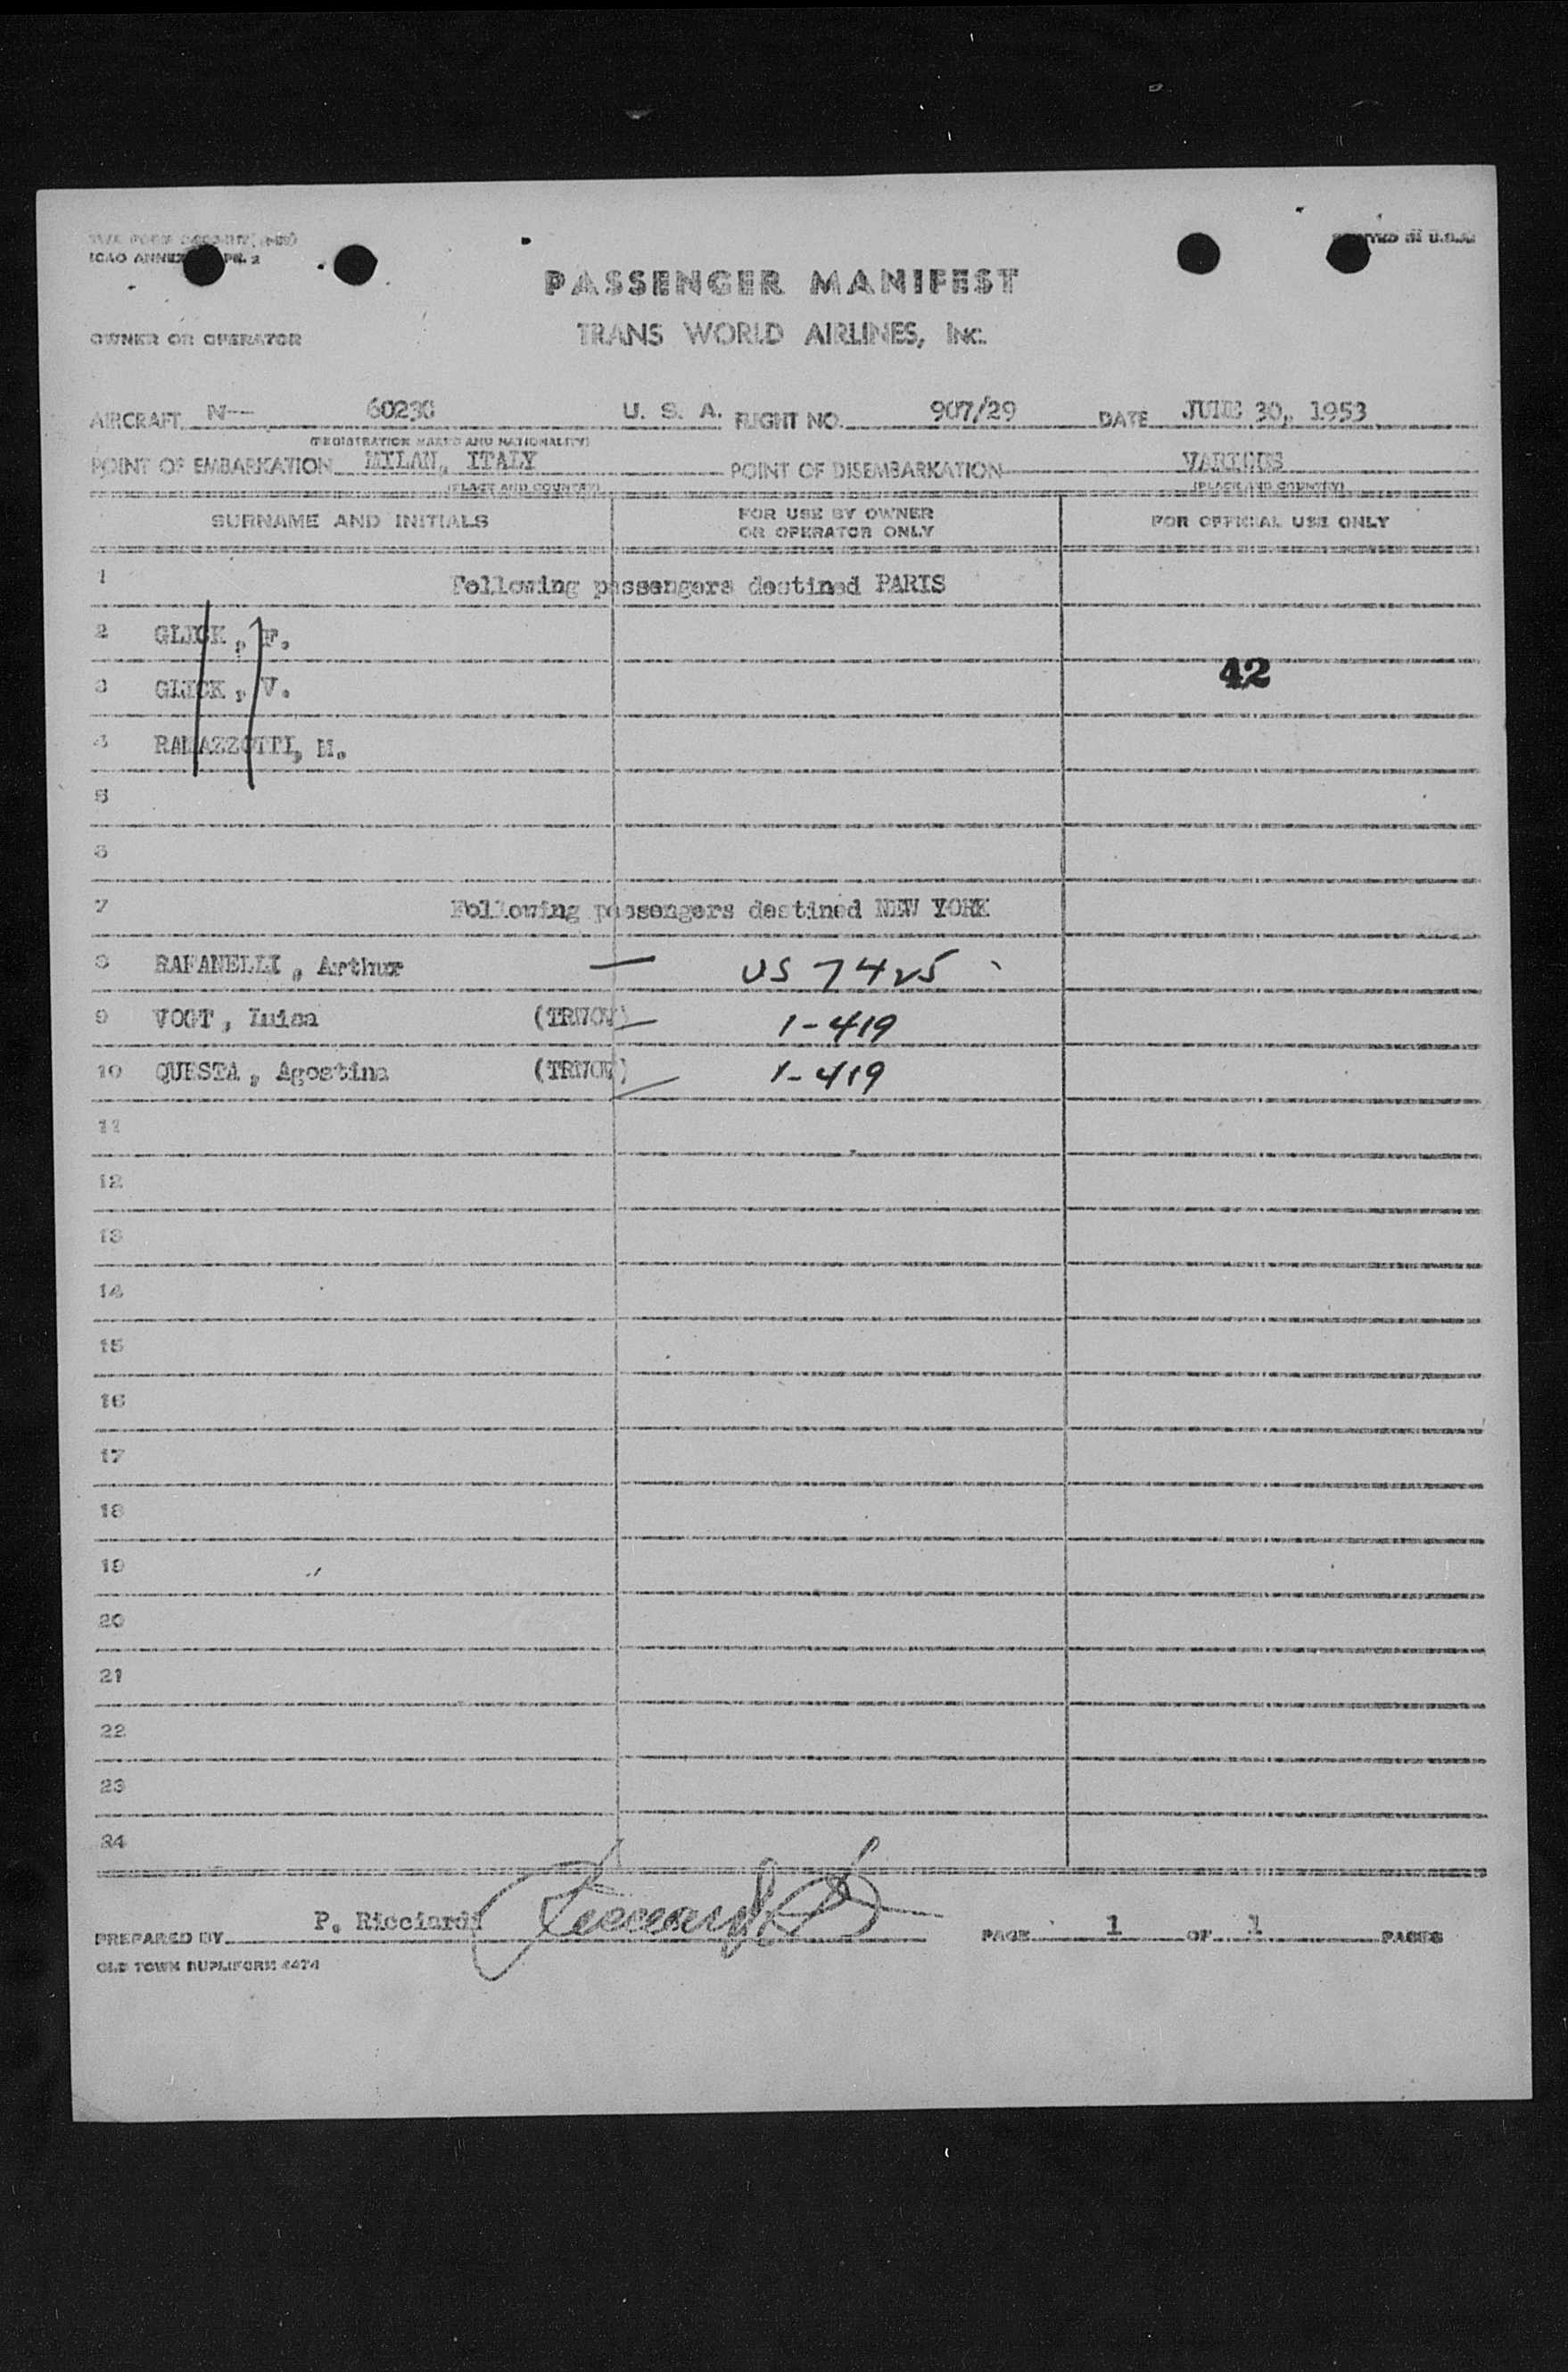 ICAO ANNEX
PRINTED IN U.S.A.
PASSENGER MANIFEST
OWNER OR OPERATOR TRANS WORLD AIRLINES, INC.
AIRCRAFT N-- U. S. A. FLIGHT NO. 907/29 DATE JUNE 30, 1953
(REGISTRATION MARKS AND NATIONALITY)
POINT OF EMBARKATION MILAN, ITALY POINT OF DISEMBARKATION VARIOUS
(PLACE AND COUNTRY) (PLACE AND COUNTRY)
SURNAME AND INITIALS FOR USE BY OWNER OR OPERATOR ONLY FOR OFFICIAL USE ONLY
1 Following passengers destined PARIS
2 GLICK, F.
42
3 GLICK, V.
4 RAMAZZOTTI, M.
5
6
7 Following passengers destined NEW YORK
8 RAFANELLI, Arthur — US 7425
9 VOGT, Luisa (TRWOV) — 1-419
10 QUESTA, Agostina (TRWOV) — 1-419
11
12
13
14
15
16
17
18
19
20
21
22
23
24
PREPARED BY P. Ricciardi PAGE 1 OF 1 PAGES
OLD TOWN DUPLIFORM 4474